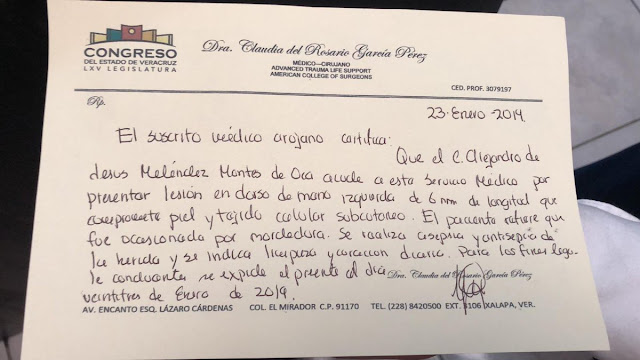 CONGRESO
DEL ESTADO DE VERACRUZ
LXV LEGISLATURA
Dra. Claudia del Rosario García Pérez
MÉDICO—CIRUJANO
ADVANCED TRAUMA LIFE SUPPORT
AMERICAN COLLEGE OF SURGEONS
CED. PROF. 3079197
Rp.
23-Enero-2019.
El suscrito médico cirujano certifica:
Que el C. Alejandro de
Jesus Meléndez Montes de Oca acude a este Servicio Médico por
presentar lesión en dorso de mano izquierda de 6 mm de longitud que
compromete piel y tejido celular subcutáneo. El paciente refiere que
fue ocasionada por mordedura. Se realiza asepsia y antisepsia de
la herida y se indica limpieza y curación diaria. Para los fines lega-
le conducentes se expide el presente al día
Dra. Claudia del Rosario García Pérez
veintitres de Enero de 2019.
AV. ENCANTO ESQ. LÁZARO CÁRDENAS COL. EL MIRADOR C.P. 91170 TEL. (228) 8420500 EXT. 3106 XALAPA, VER.